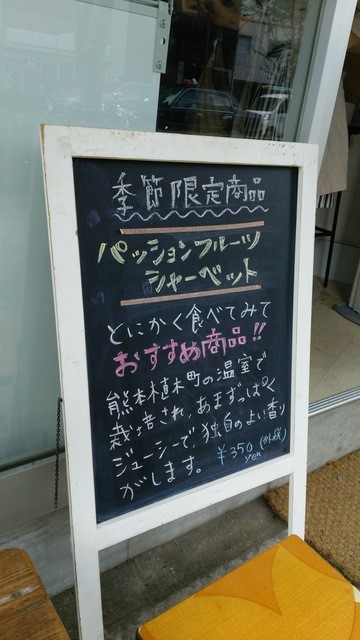 季節限定商品
パッションフルーツ
シャーベット
とにかく食べてみて
おすすめ商品!!
熊本植木町の温室で
栽培され、あまずっぱく
ジューシーで、独自のよい香り
がします。 ¥350 (外税)
yen